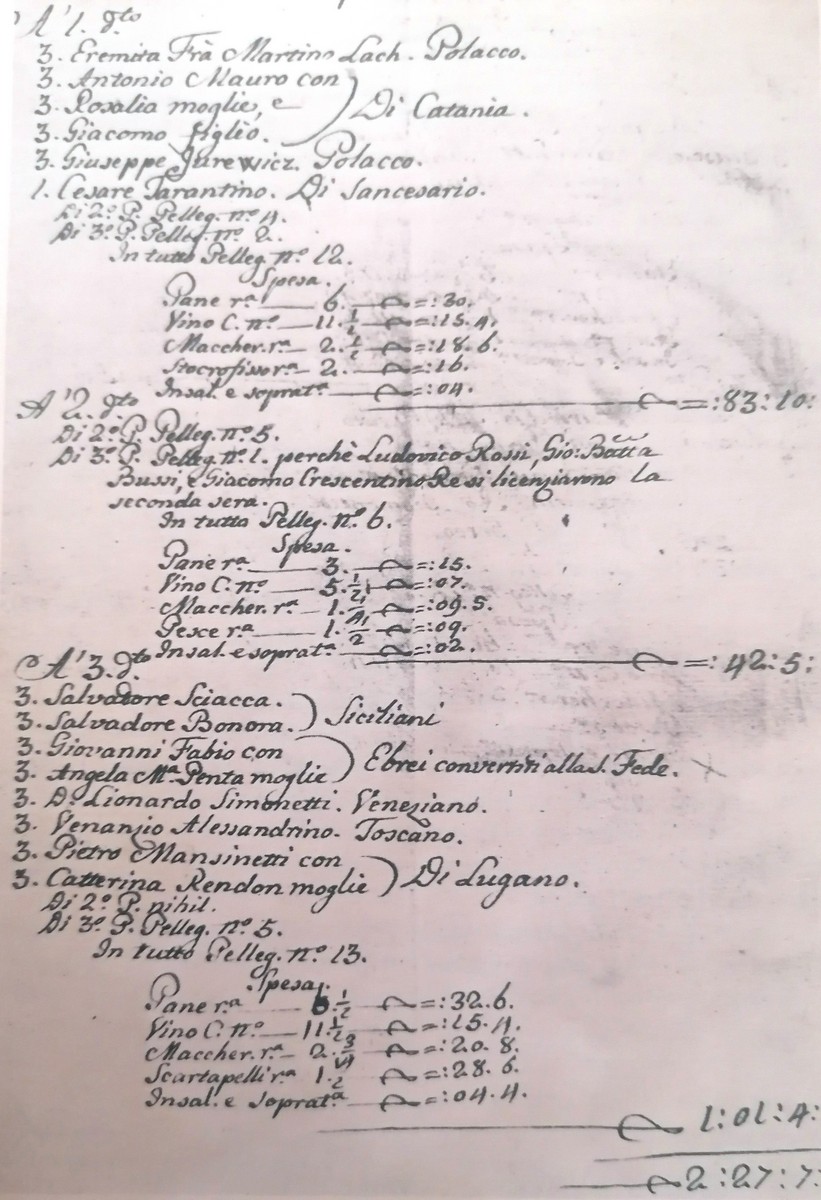 A' 1. dto
3. Eremita Frà Martino Lach. Polacco.
3. Antonio Mauro con
3. Rosalia moglie, e ) Di Catania.
3. Giacomo figlio.
3. Giuseppe Jurewicz. Polacco.
1. Cesare Tarantino. Di Sancesario.
Di 2º. P. Pelleg. nº. 4.
Di 3º. P. Pelleg. nº. 2.
In tutto Pelleg. nº. 12.
Spesa.
Pane r.ª — 6. — =:30.
Vino C. nº. — 11.½ — =:15.4.
Maccher. r.ª — 2.½ — =:18.6.
Stocofisso r.ª — 2. — =:16.
Insal. e soprat.ª — =:04.
— =:83:10:
A' 2. dto
Di 2º. P. Pelleg. nº. 5.
Di 3º. P. Pelleg. nº. 1. perchè Ludovico Rossi, Gio: Batta
Bussi, e Giacomo Crescentino Re si licenziarono la
seconda sera.
In tutto Pelleg. nº. 6.
Spesa.
Pane r.ª — 3. — =:15.
Vino C. nº. — 5.¼ — =:07.
Maccher. r.ª — 1.¼ — =:09.5.
Pesce r.ª — 1.½ — =:09.
Insal. e soprat.ª — =:02.
— =:42:5:
A' 3. dto
3. Salvadore Sciacca.
3. Salvadore Bonora. ) Siciliani
3. Giovanni Fabio con
3. Angela M.ª Penta moglie ) Ebrei convertiti alla S. Fede. ×
3. D. Lionardo Simonetti. Veneziano.
3. Venanzio Alessandrino. Toscano.
3. Pietro Mansinetti con
3. Catterina Rendon moglie ) Di Lugano.
Di 2º. P. nihil.
Di 3º. P. Pelleg. nº. 5.
In tutto Pelleg. nº. 13.
Spesa.
Pane r.ª — 6.½ — =:32.6.
Vino C. nº. — 11.½ — =:15.4.
Maccher. r.ª — 2.¾ — =:20.8.
Scartapelli r.ª — 1.½ — =:28.6.
Insal. e soprat.ª — =:04.4.
— 1:01:4:
— 2:27:7: